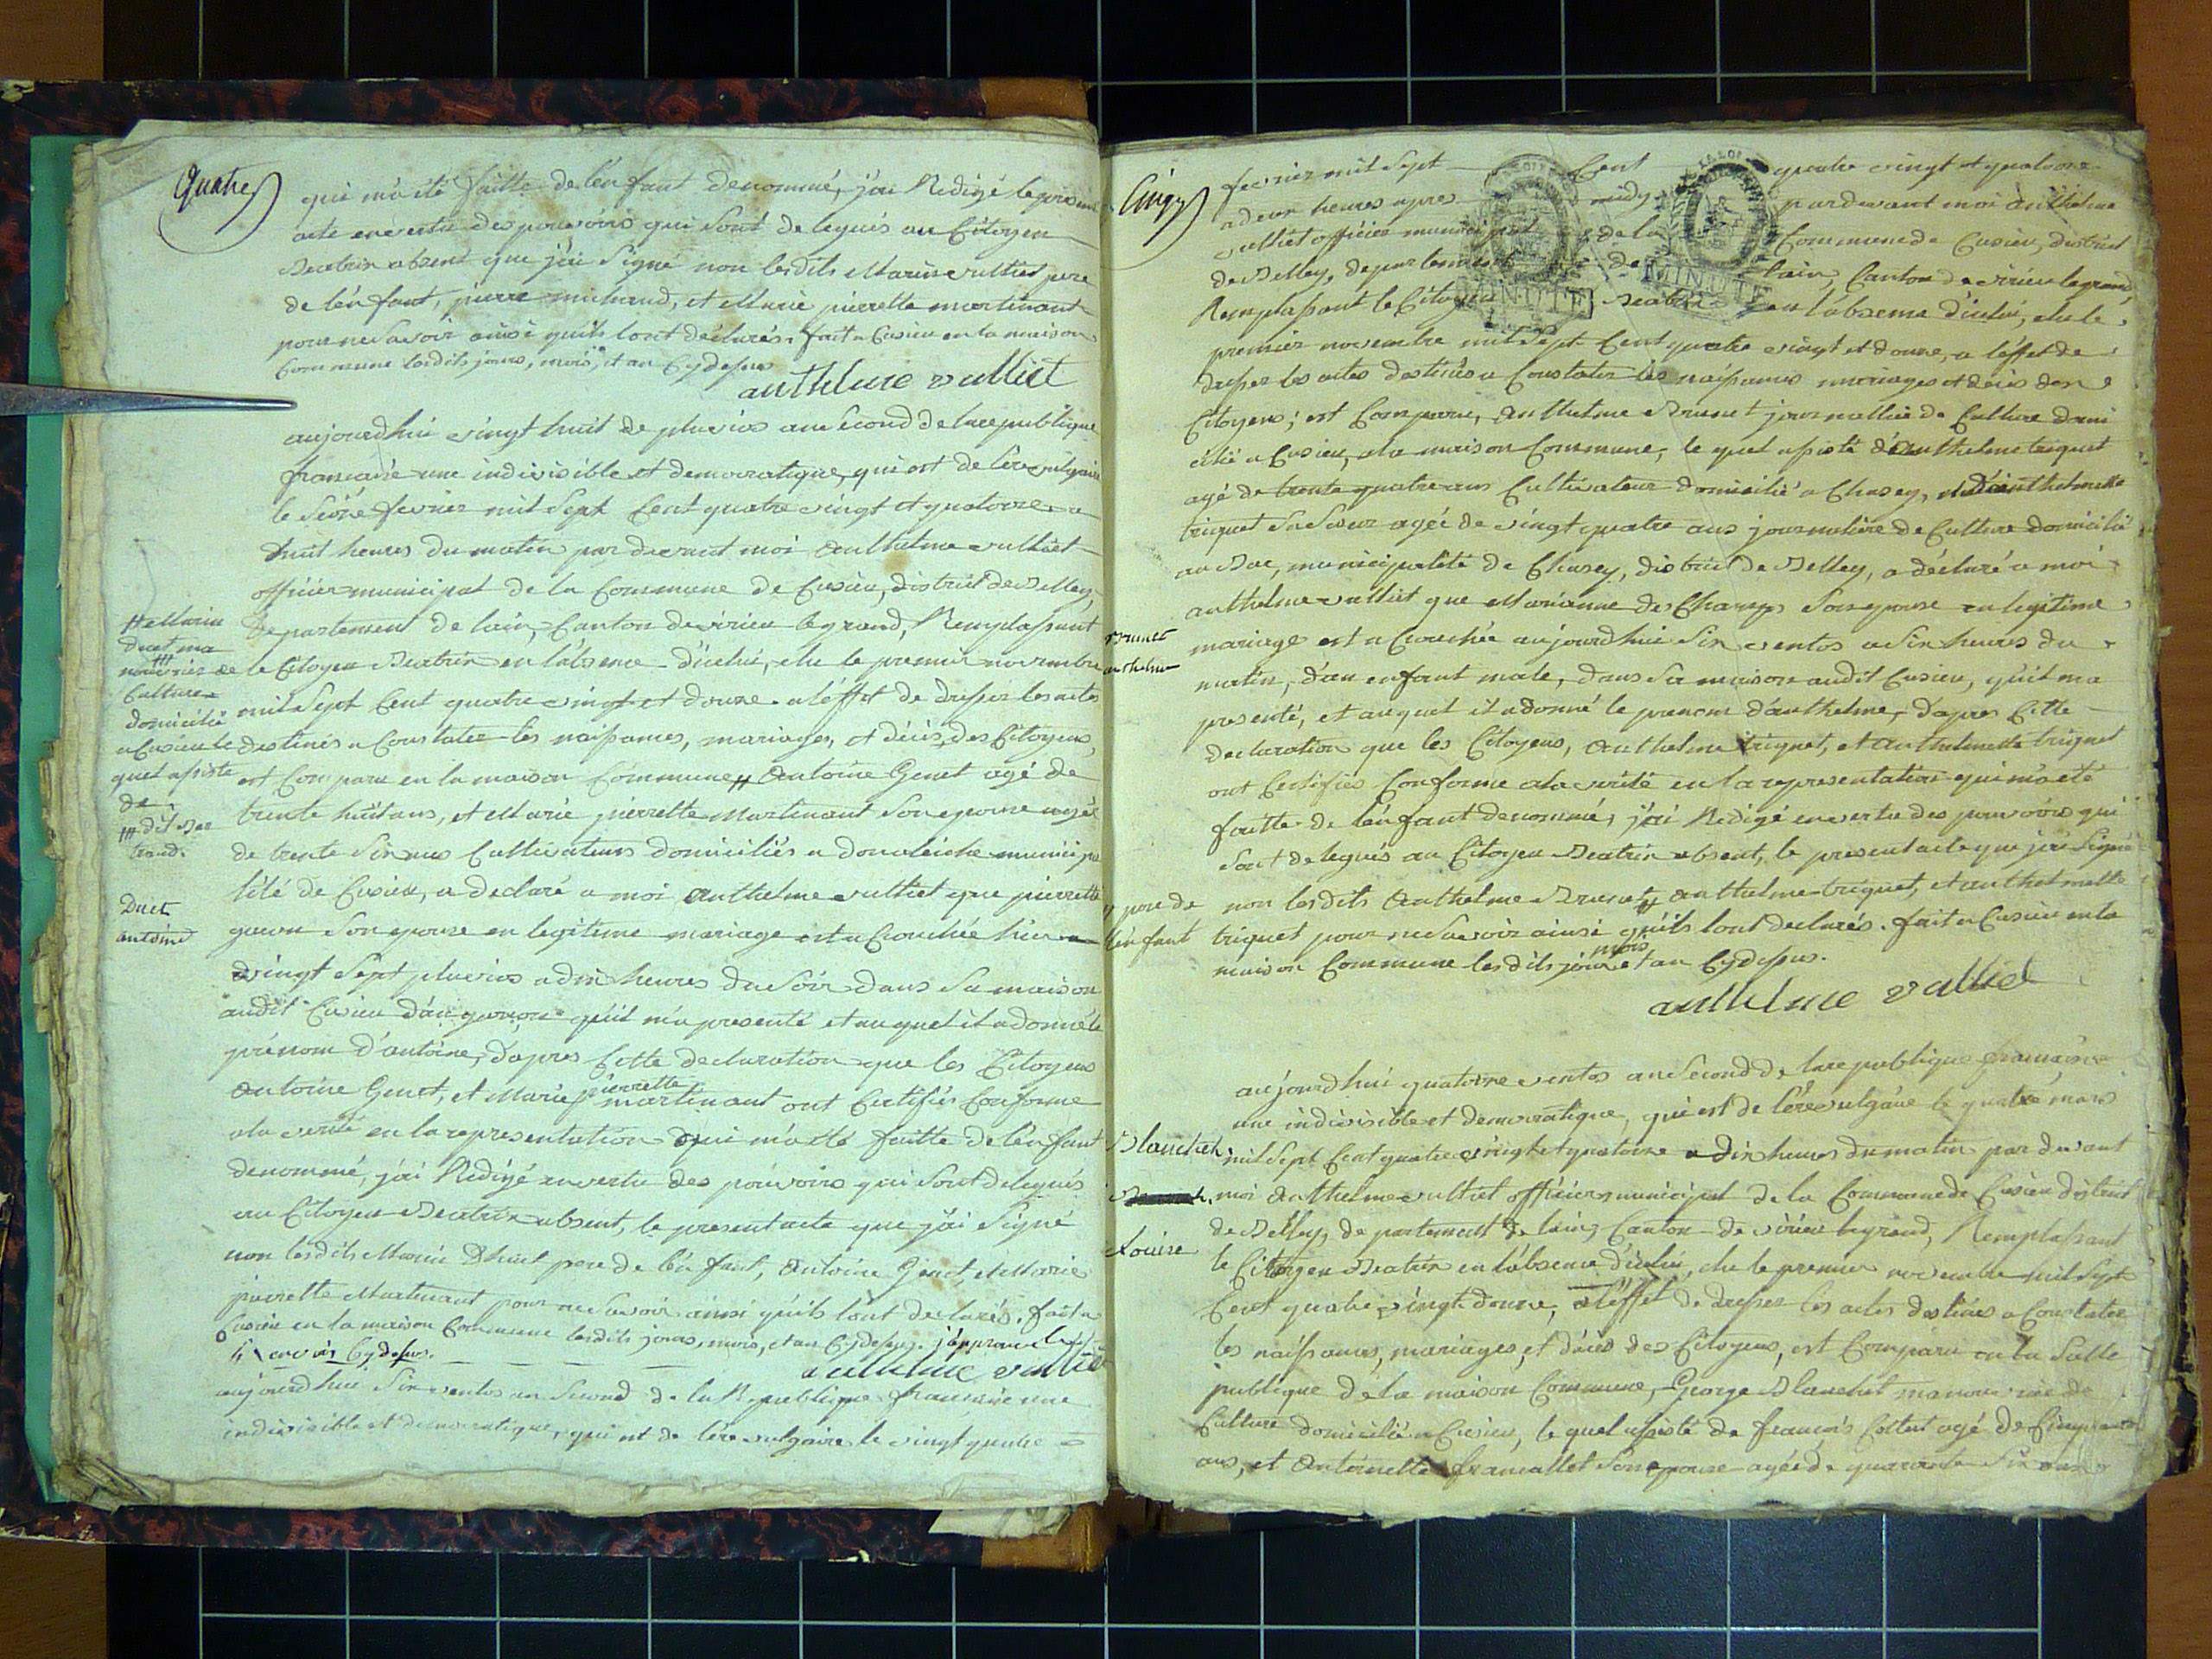 Quatre
qui m'a été faitte de l'enfant denommé, j'ai Redigé le présent
acte en vertu des pouvoirs qui sont delegués au Citoyen
Beatrix absent que j'ai signé non lesdits Marin vulliet pere
de l'enfant, pierre michaud, et Marie pierrette martinant
pour ne savoir ainsi quils l'ont déclarés. fait a Cusieu en la maison
Commune lesdits jours, mois, et an Cydessus
anthelme vulliet
aujourdhui vingt huit de pluvios an second de la republique
francaise une indivisible et democratique, qui est de l'ere vulgaire
le seize fevrier mil sept Cent quatre vingt et quatorze a
huit heures du matin par devant moi anthelme vulliet
officier municipal de la Commune de Cusieu, district de Belley,
Departement de lain, Canton de virieu le grand, Remplassant
le Citoyen Beatrix en l'absence d'icelui, elu le premier novembre
mil sept Cent quatre vingt et douze. a l'effet de dresser les actes
destinés a Constater les naissances, mariages, et décès des Citoyens,
est Comparu en la maison Commune # Antoine Genet agé de
trente huit ans, et Marie pierrette Martinant son epouse agée
de trente six ans Cultivateurs domiciliés a don leiche municipa
lité de Cusieu, a declaré a moi anthelme vulliet que pierrette
son epouse en legitime mariage est a Crouchée hier
vingt sept pluvios a dix heures du soir dans sa maison
audit Cusieu d'un garçon qu'il m'a presenté et au quel il a donné le
prénom d'antoine, d'apres Cette declaration que les Citoyens
antoine Genet, et Marie pierrette martinant ont Certifiés Conforme
a la verité en la representation qui m'a été faitte de l'enfant
denommé, j'ai Redigé en vertu des pouvoirs qui sont delegués
au Citoyen Beatrix absent, le present acte que j'ai signé
non lesdits Marin Duet pere de l'enfant, Antoine Genet, et Marie
pierrette Martinant pour ne savoir ainsi qu'ils l'ont declarés. fait a
Cusieu en la maison Commune lesdits jours, mois, et an Cydessus. j'approuve le
renvois Cydessus.
anthelme vulliet
aujourdhui six ventos an second de la Republique francaise une
indivisible et democratique, qui est de l'ere vulgaire le vingt quatre
# Marin
Duet ma
nouvrier de
Culture
domicilié
a Cusieu le
quel assisté
de
dit
Duet
antoine
Cinq
fevrier mil sept Cent quatre vingt et quatorze
a deux heures apres midy pardevant moi anthelme
vulliet officier municipal de la Commune de Cusieu, district
de Belley, departement de lain, Canton de virieu le grand,
Remplassant le Citoyen Beatrix en l'absence d'icelui, elu le
premier novembre mil sept Cent quatre vingt et douze, a l'effet de
dresser les actes destinés a Constater les naissances mariages et décès des
Citoyens; est Comparu, anthelme Brunet journallier de Culture domi
cilié a Cusieu, a la maison Commune, le quel assisté d'anthelme triquet
agé de trente quatre ans Cultivateur domicilié a Chasey, et d'anthelmette
triquet sa soeur agée de vingt quatre ans journalière de Culture domicilié
au Bac, municipalité de Chasey, district de Belley, a déclaré a moi
anthelme vulliet que Marianne des Champs son epouse en legitime
mariage est a Crouchée aujourdhui six ventos a six heures du
matin, d'un enfant male, dans sa maison audit Cusieu, qu'il m'a
presenté, et auquel il a donné le prenom d'anthelme, d'apres Cette
declaration que les Citoyens, anthelme triquet, et anthelmette triquet
ont Certifiés Conforme a la verité en la representation qui m'a été
faitte de l'enfant denommé, j'ai Redigé en vertu des pouvoirs qui
sont delegués au Citoyen Beatrix absent, le present acte que j'ai signé
non lesdits Anthelme Brunet # anthelme triquet, et anthelmette
triquet pour ne savoir ainsi qu'ils l'ont declarés. fait a Cusieu en la
maison Commune lesdits jour mois et an Cydessus.
anthelme vulliet
Brunet
anthelme
# pere de
l'enfant
LA LOI
MINUTE
LA LOI
MINUTE
aujourdhui quatorze ventos an second de la republique française
une indivisible et democratique, qui est de l'ere vulgaire le quatre mars
mil sept Cent quatre vingt et quatorze a dix heures du matin par devant
moi Anthelme vulliet officier municipal de la Commune de Cusieu district
de Belley, departement de lain, Canton de virieu le grand, Remplassant
le Citoyen Beatrix en l'absence d'icelui, elu le premier novembre mil sept
Cent quatre vingt douze, a l'effet de dresser les actes destinés a Constater
les naissances, mariages, et décès des Citoyens, est Comparu en la salle
publique de la maison Commune, George Blanchet manouvrier de
Culture domicilié a Cusieu, le quel assisté de françois Cottet agé de Cinquante
ans, et Antoinette francallet son epouse agée de quarante six ans
Blanchet
Louise